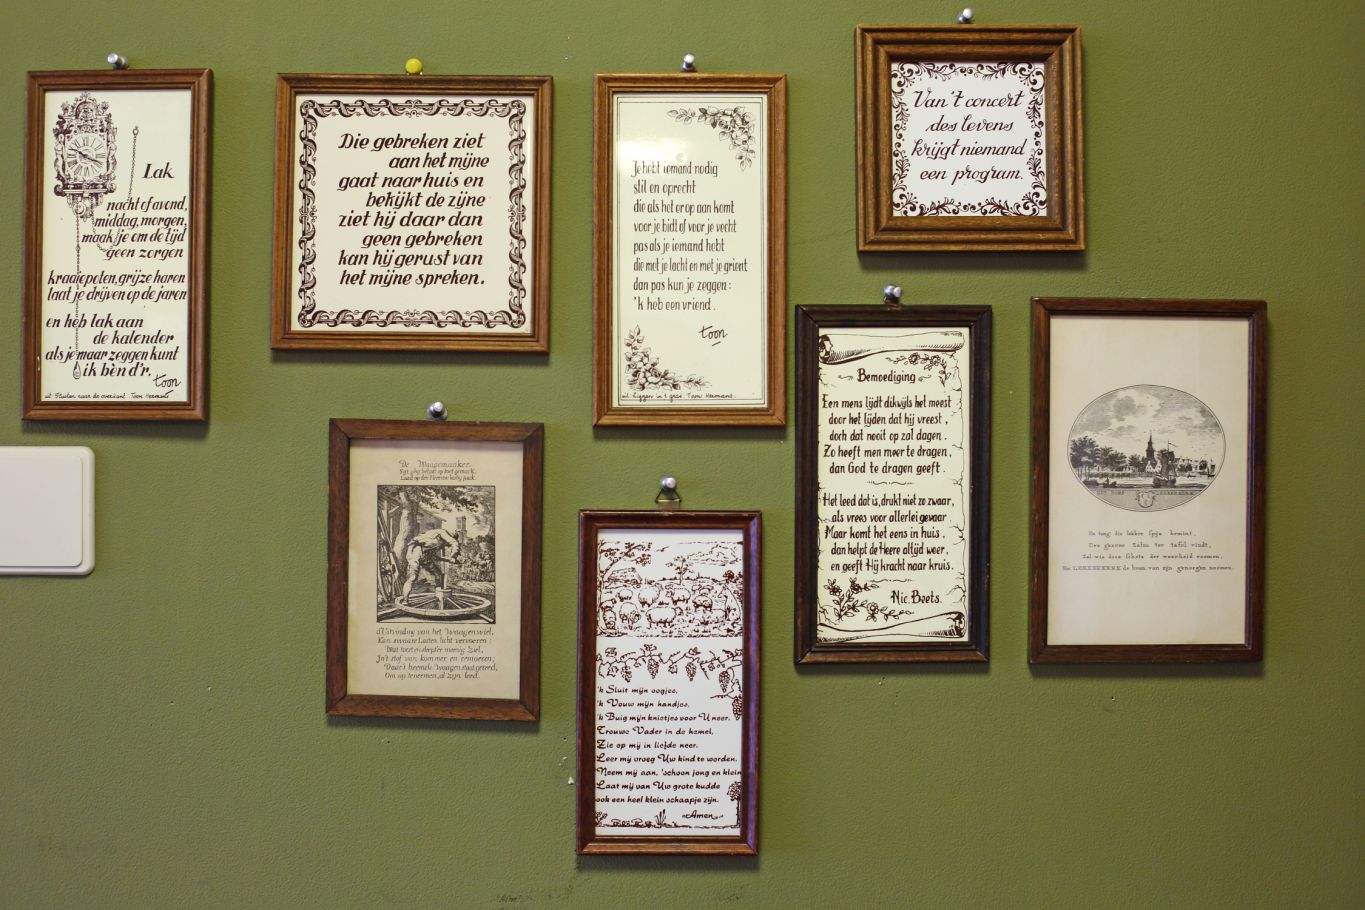 Lak
nacht of avond,
middag, morgen,
maak je om de tijd
geen zorgen
kraaiepoten, grijze haren
laat je drijven op de jaren
en heb lak aan
de kalender
als je maar zeggen kunt
ik bèn d'r.
toon
uit: Fluiten naar de overkant. Toon Hermans
Die gebreken ziet
aan het mijne
gaat naar huis en
bekijkt de zijne
ziet hij daar dan
geen gebreken
kan hij gerust van
het mijne spreken.
Je hebt iemand nodig
stil en oprecht
die als het er op aan komt
voor je bidt of voor je vecht
pas als je iemand hebt
die met je lacht en met je grient
dan pas kun je zeggen:
'k heb een vriend.
toon
uit: Liggen in 't gras. Toon Hermans.
Van 't concert
des levens
krijgt niemand
een program.
De Waagemaaker.
d'Uitvinding van het Waagenwiel,
Kon zwaare Lasten licht vervoeren:
In't stof van kommer en
Om op te neemen, al zyn leed.
'k Sluit mijn oogjes,
'k Vouw mijn handjes,
'k Buig mijn knietjes voor U neer.
Trouwe Vader in de hemel,
Zie op mij in liefde neer.
Leer mij vroeg Uw kind te worden.
Neem mij aan, 'schoon jong en klein
Laat mij van Uw grote kudde
ook een heel klein schaapje zijn.
~Amen~
Bemoediging
Een mens lijdt dikwijls het meest
door het lijden dat hij vreest,
doch dat nooit op zal dagen.
Zo heeft men meer te dragen,
dan God te dragen geeft.
Het leed dat is, drukt niet zo zwaar,
als vrees voor allerlei gevaar.
Maar komt het eens in huis,
dan helpt de Heere altijd weer,
en geeft Hij kracht naar kruis.
Nic. Beets.
Uw tong die lekkre spijs bemint,
Den gaaven Zalm ter tafel vindt,
Zal wis deez' schets der waarheid roemen,
de bron van zijn genoegen noemen.